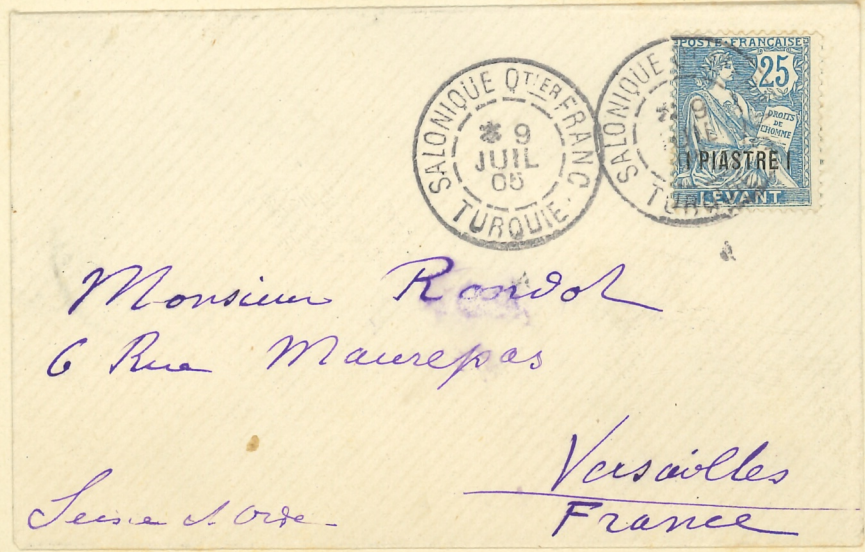 SALONIQUE QTIER FRANC
* 9
JUIL
05
TURQUIE
SALONIQUE
9
TURQ
POSTE FRANÇAISE
25
DROITS
DE
L'HOMME
1 PIASTRE 1
LEVANT
Monsieur Rondot
6 Rue Maurepas
Versailles
France
Seine et Oise